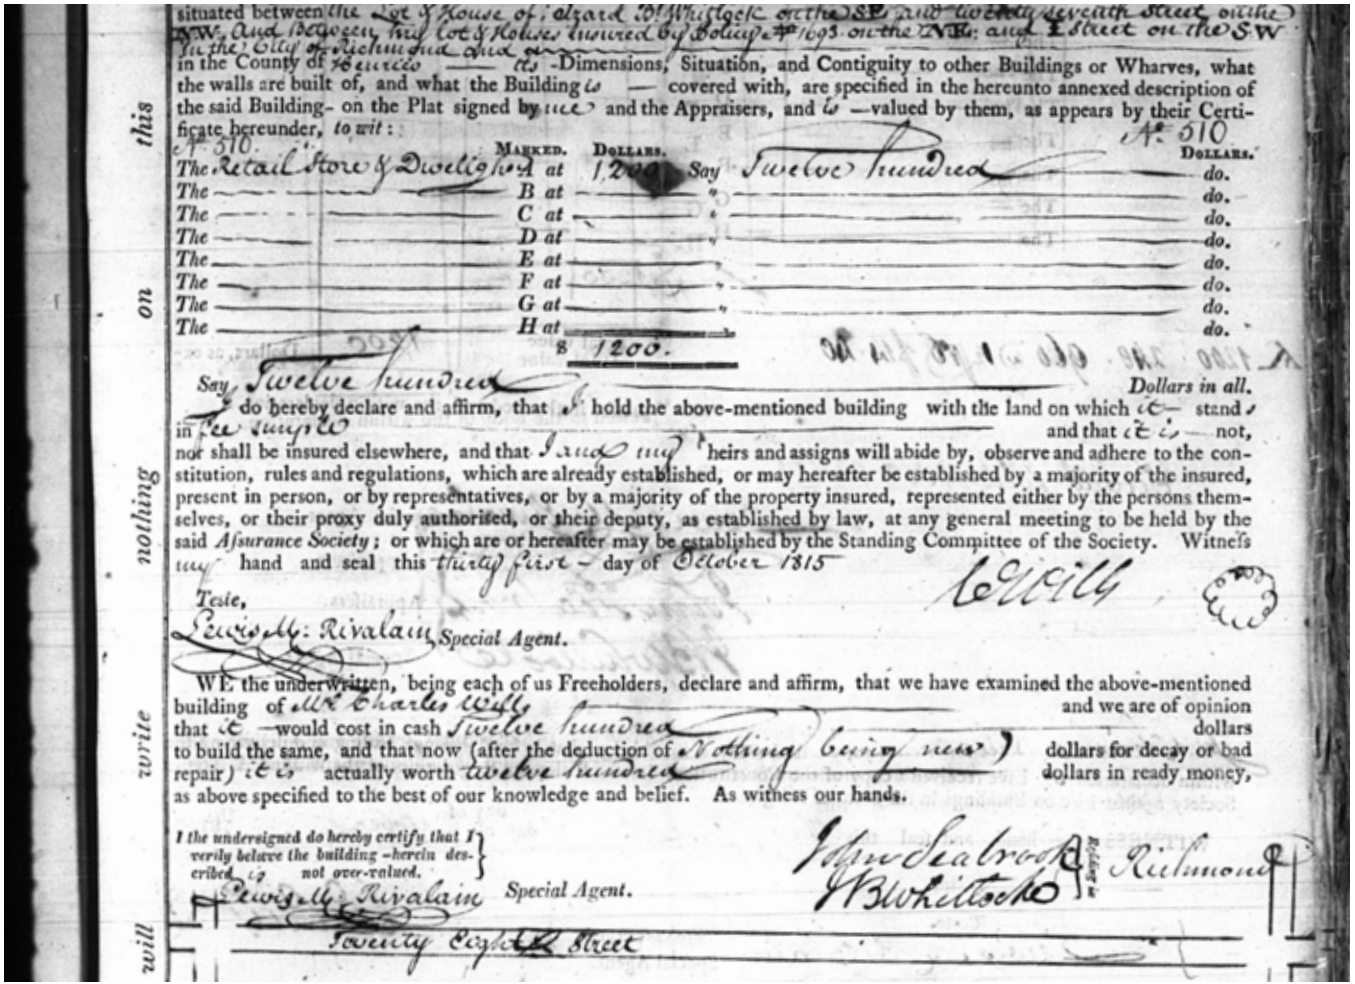 situated between the Lot & House of Izard B. Whitlock on the SE, and twenty seventh Street on the
NW. And Between my Lot & Houses Insured by Policy No 1693 on the NE: and E Street on the SW
in the City of Richmond and
in the County of Henrico its -Dimensions, Situation, and Contiguity to other Buildings or Wharves, what
the walls are built of, and what the Building is — covered with, are specified in the hereunto annexed description of
the said Building- on the Plat signed by me and the Appraisers, and is —valued by them, as appears by their Certi-
ficate hereunder, to wit:
No 510. No 510
MARKED. DOLLARS. DOLLARS.
The Retail Store & Dwelighs A at 1,200 Say Twelve hundred do.
The B at " do.
The C at " do.
The D at " do.
The E at " do.
The F at " do.
The G at " do.
The H at do.
$ 1200.
Say Twelve hundred Dollars in all.
I do hereby declare and affirm, that I hold the above-mentioned building with the land on which it — stands
in fee simple and that it is — not,
nor shall be insured elsewhere, and that I and my heirs and assigns will abide by, observe and adhere to the con-
stitution, rules and regulations, which are already established, or may hereafter be established by a majority of the insured,
present in person, or by representatives, or by a majority of the property insured, represented either by the persons them-
selves, or their proxy duly authorised, or their deputy, as established by law, at any general meeting to be held by the
said Assurance Society; or which are or hereafter may be established by the Standing Committee of the Society. Witness
my hand and seal this thirty first — day of October 1815
C Wills
Teste,
Lewis M. Rivalain Special Agent.
WE the underwritten, being each of us Freeholders, declare and affirm, that we have examined the above-mentioned
building of Mr. Charles Wills and we are of opinion
that it would cost in cash Twelve hundred dollars
to build the same, and that now (after the deduction of Nothing being new) dollars for decay or bad
repair) it is actually worth twelve hundred dollars in ready money,
as above specified to the best of our knowledge and belief. As witness our hands.
I the undersigned do hereby certify that I
verily believe the building -herein des-
cribed is not over-valued.
Lewis M. Rivalain Special Agent.
John Seabrook
J B Whitlocke
Residing in
Richmond
Twenty Eighth Street
this
on
nothing
write
will